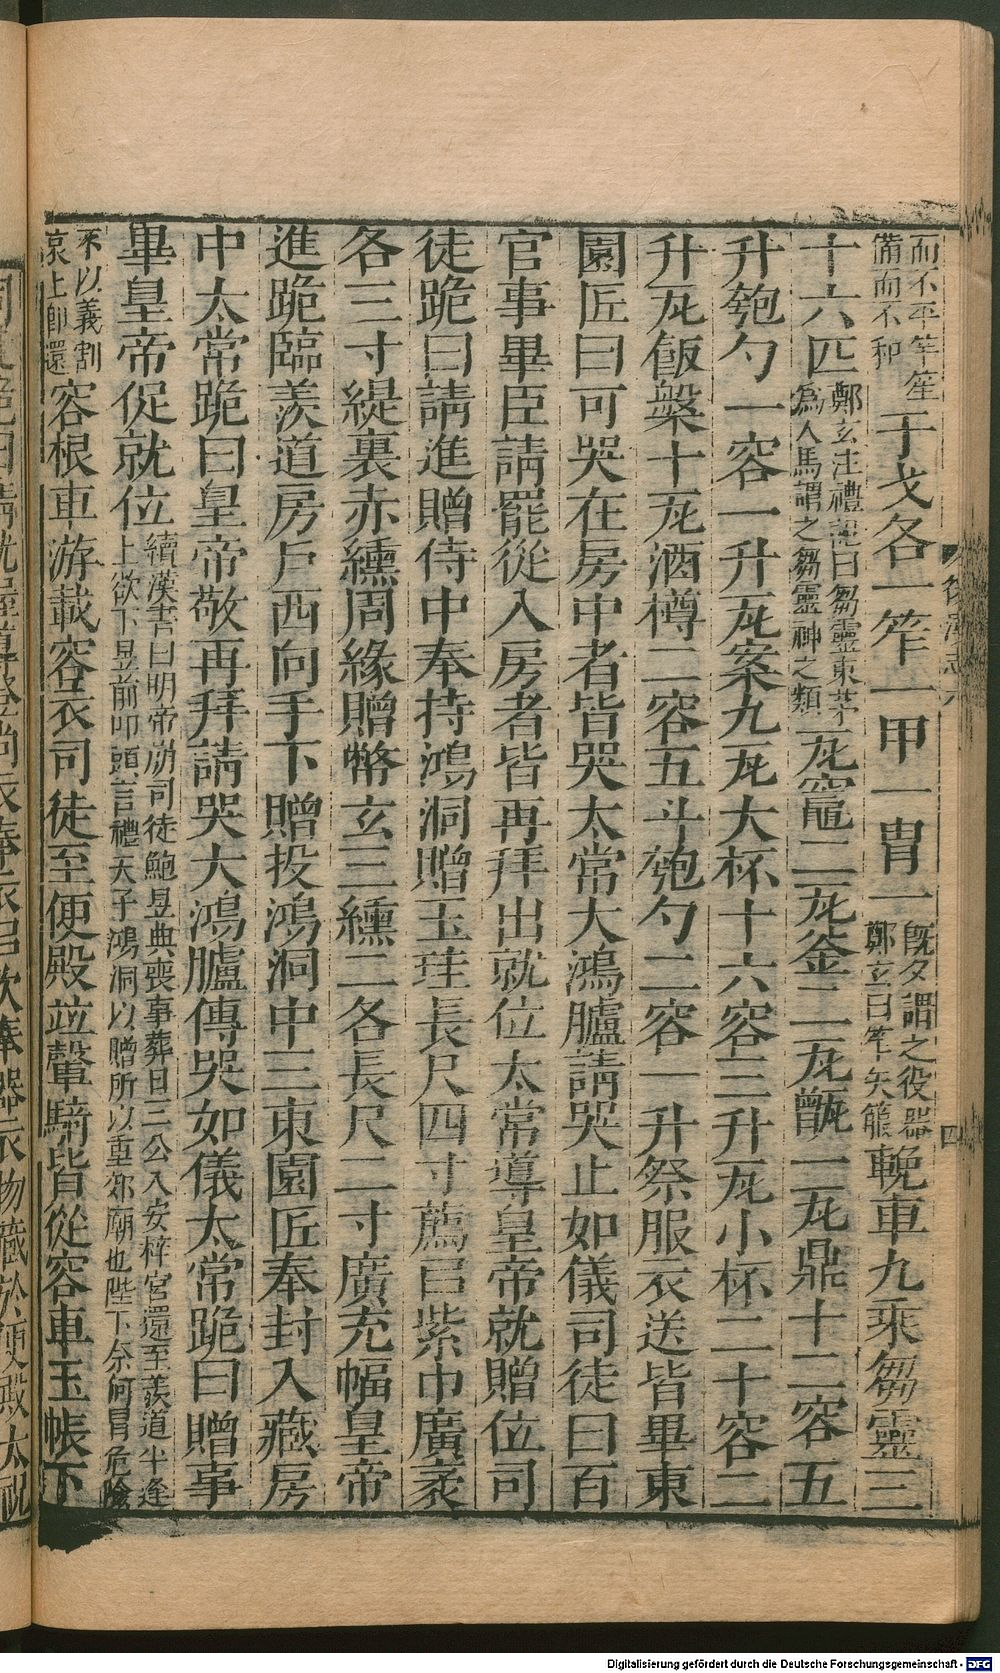 而不平竿笙備而不和干戈各一筰一甲一冑一既夕謂之役器鄭玄曰筰矢箙輓車九乘芻靈三
十六匹鄭玄注禮記曰芻靈束茅為人馬謂之芻靈神之類瓦竈二瓦釜二瓦甑一瓦鼎十二容五
升匏勺一容一升瓦案九瓦大杯十六容三升瓦小杯二十容二
升瓦飯槃十瓦酒樽二容五斗匏勺二容一升祭服衣送皆畢東
園匠曰可哭在房中者皆哭太常大鴻臚請哭止如儀司徒曰百
官事畢臣請罷從入房者皆再拜出就位太常導皇帝就贈位司
徒跪曰請進贈侍中奉持鴻洞贈玉珪長尺四寸薦曰紫巾廣袤
各三寸緹裏赤纁周緣贈幣玄三纁二各長尺二寸廣充幅皇帝
進跪臨羨道房戶西向手下贈投鴻洞中三東園匠奉封入藏房
中太常跪曰皇帝敬再拜請哭大鴻臚傳哭如儀太常跪曰贈事
畢皇帝促就位續漢書曰明帝崩司徒鮑昱典喪事葬日三公入安梓宮還至羨道半逢上欲下昱前叩頭言禮天子鴻洞以贈所以重郊廟也陛下奈何冒危險
不以義割哀上即還容根車游載容衣司徒至便殿竝轝騎皆從容車玉帳下
後漢志六
四
Digitalisierung gefördert durch die Deutsche Forschungsgemeinschaft - DFG